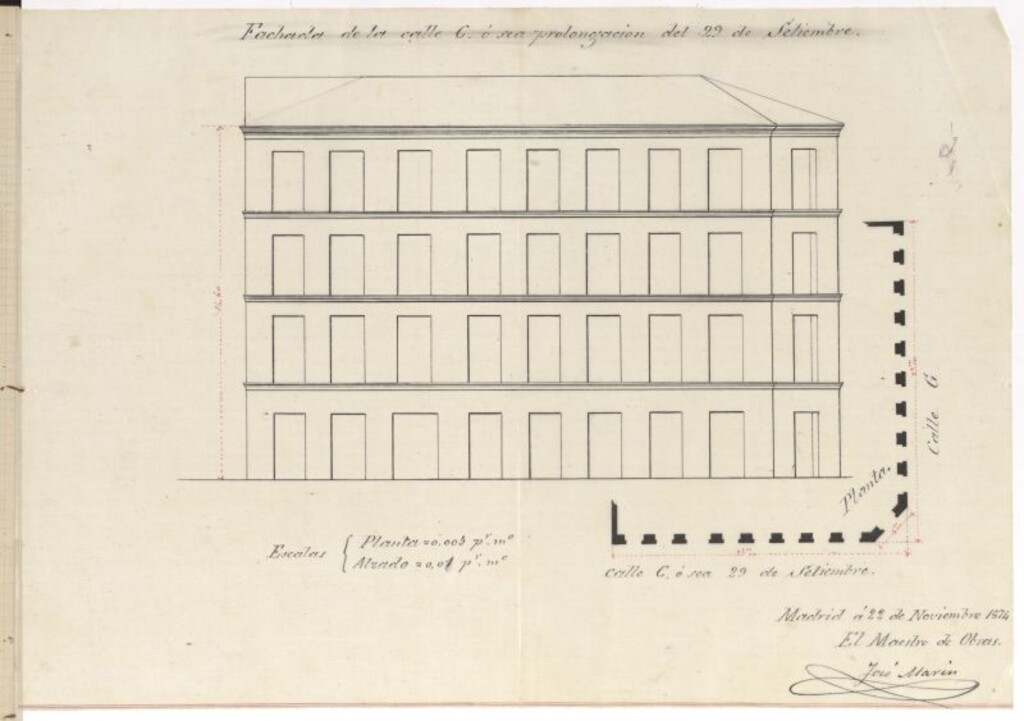 Fachada de la calle C. ó sea prolongacion del 29 de Setiembre.
Calle G
Planta.
Escalas { Planta = 0.005 pʳ. mº
Alzado = 0,01 pʳ. mº
calle C, ó sea 29 de Setiembre.
Madrid á 22 de Noviembre 1874
El Maestro de Obras.
José Marin